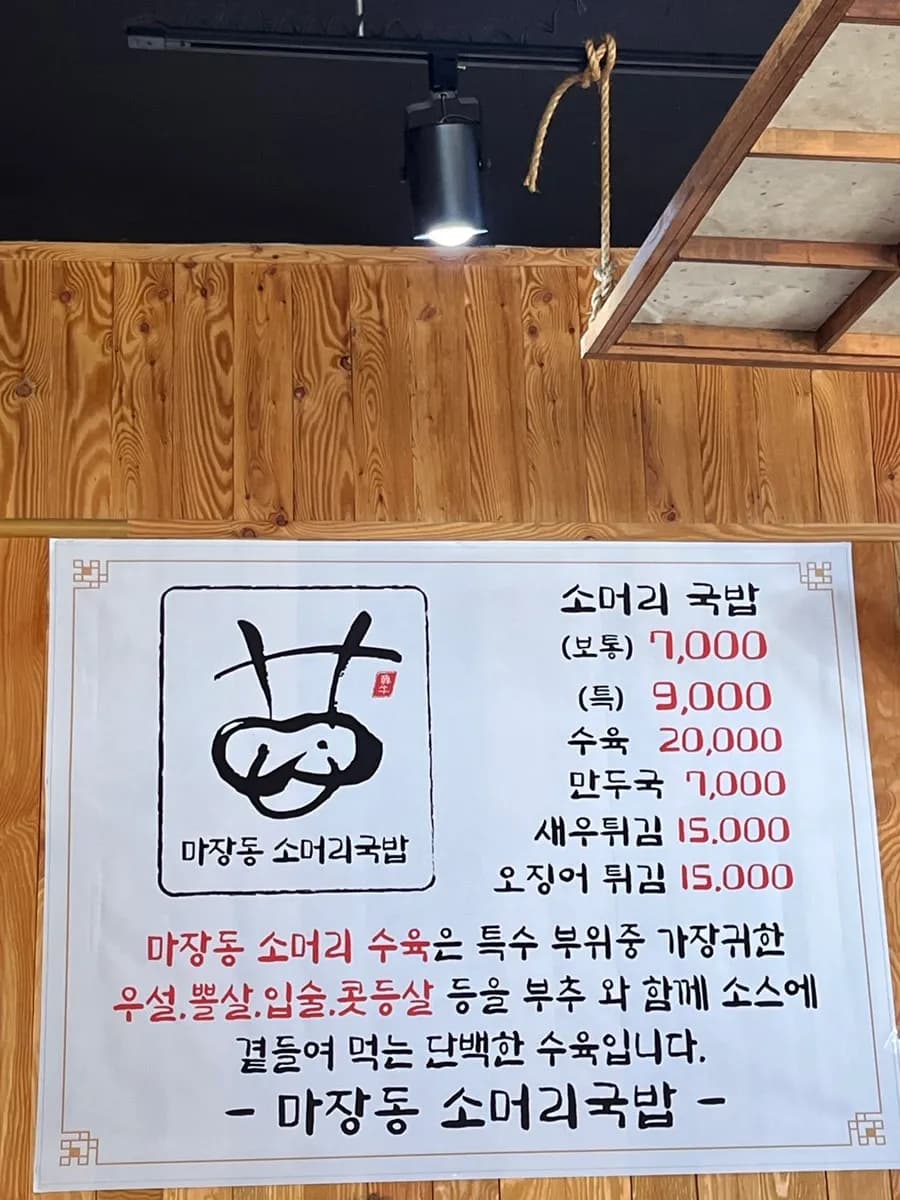 韓牛
마장동 소머리국밥
소머리 국밥
(보통) 7,000
(특) 9,000
수육 20,000
만두국 7,000
새우튀김 15.000
오징어 튀김 15.000
마장동 소머리 수육은 특수 부위중 가장귀한
우설.뽈살.입술.콧등살 등을 부추 와 함께 소스에
곁들여 먹는 단백한 수육입니다.
- 마장동 소머리국밥 -